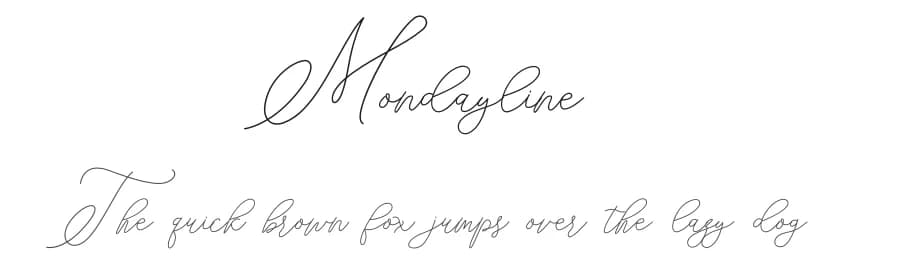 Mondayline
The quick brown fox jumps over the lazy dog